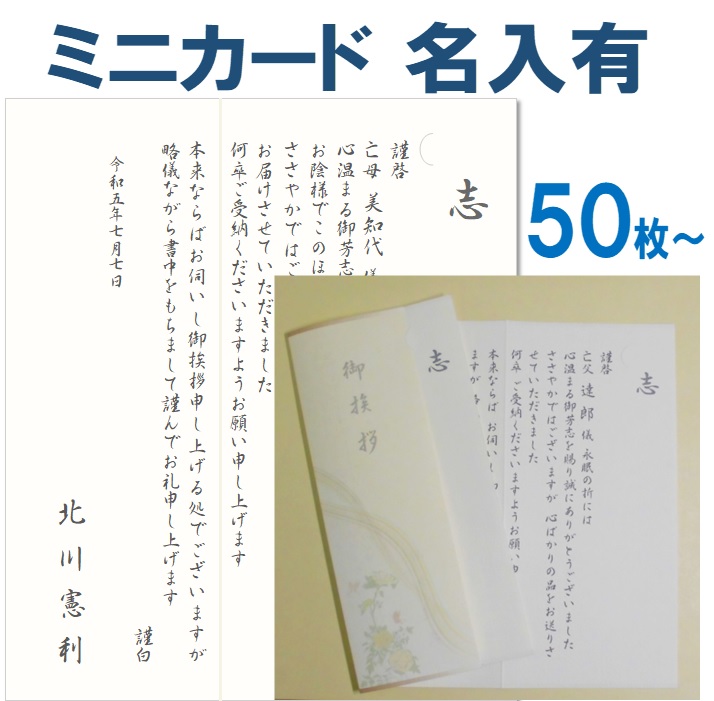 ミニカード 名入有
50枚～
志
謹啓
亡母 美知代
心温まる御芳志
お陰様でこのほ
ささやかではご
お届けさせていただきました
何卒ご受納くださいますようお願い申し上げます
本来ならばお伺いし御挨拶申し上げる処でございますが
略儀ながら書中をもちまして謹んでお礼申し上げます
謹白
令和五年七月七日
北川憲利
志
謹啓
亡父 達郎 儀 永眠の折には
心温まる御芳志を賜り誠にありがとうございました
ささやかではございますが 心ばかりの品をお送りさ
せていただきました
何卒 ご受納くださいますようお願い
本来ならば お伺いし
ますが
志
御挨拶